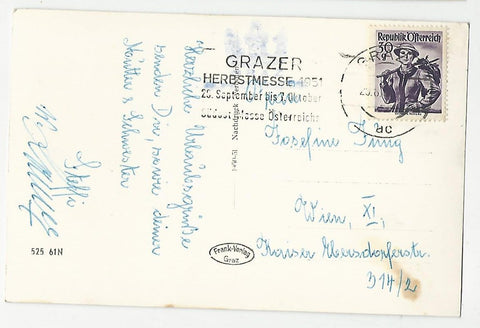 Herzliche Urlaubsgrüße
senden Dir, sowie deiner
Mutter & Schwester
Steffi
525 61N
Frank-Verlag
Graz
Nachdruck
GRAZER
HERBSTMESSE 1951
29. September bis 7. Oktober
Südost-Messe Österreichs
Republik Österreich
30
Josefine Jung
Wien, XI,
Kaiser Ebersdorferstr.
314/2